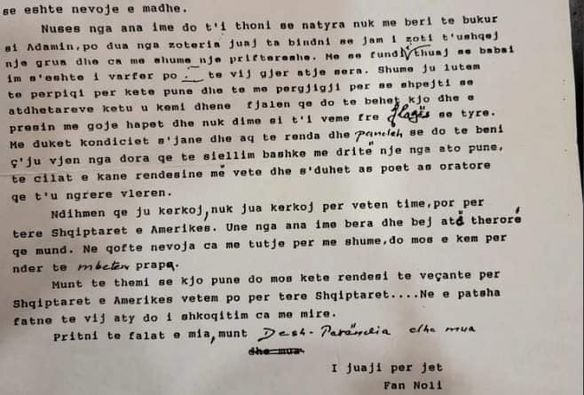 se eshte nevoje e madhe.
Nuses nga ana ime do t'i thoni se natyra nuk me beri te bukur
si Adamin,po dua nga zoteria juaj ta bindni se jam i zoti t'ushqej
nje grua dhe ca me shume nje priftereshe. Me se fundi thuaj se babai
im s'eshte i varfer po te vij gjer atje sera. Shume ju lutem
te perpiqi per kete pune dhe te me pergjigji per se shpejti se
atdhetareve ketu u kemi dhene fjalen qe do te behet kjo dhe e
presin me goje hapet dhe nuk dime si t'i veme fre se tyre.
Me duket kondiciet s'jane dhe aq te renda dhe pandeh se do te beni
ç'ju vjen nga dora qe te siellim bashke me dritë nje nga ato pune,
te cilat e kane rendesine më vete dhe s'duhet as poet as oratore
qe t'u ngrere vleren.
Ndihmen qe ju kerkoj,nuk jua kerkoj per veten time,por per
tere Shqiptaret e Amerikes. Une nga ana ime bera dhe bej atë theroré
qe mund. Ne qofte nevoja ca me tutje per me shume,do mos e kem per
nder te mbetem prapa.
Munt te themi se kjo pune do mos kete rendesi te veçante per
Shqiptaret e Amerikes vetem po per tere Shqiptaret....Ne e patsha
fatne te vij aty do i shkoqitim ca me mire.
Pritni te falat e mia,munt Desh-Parëndia dhe mua
dhe mua
I juaji per jet
Fan Noli